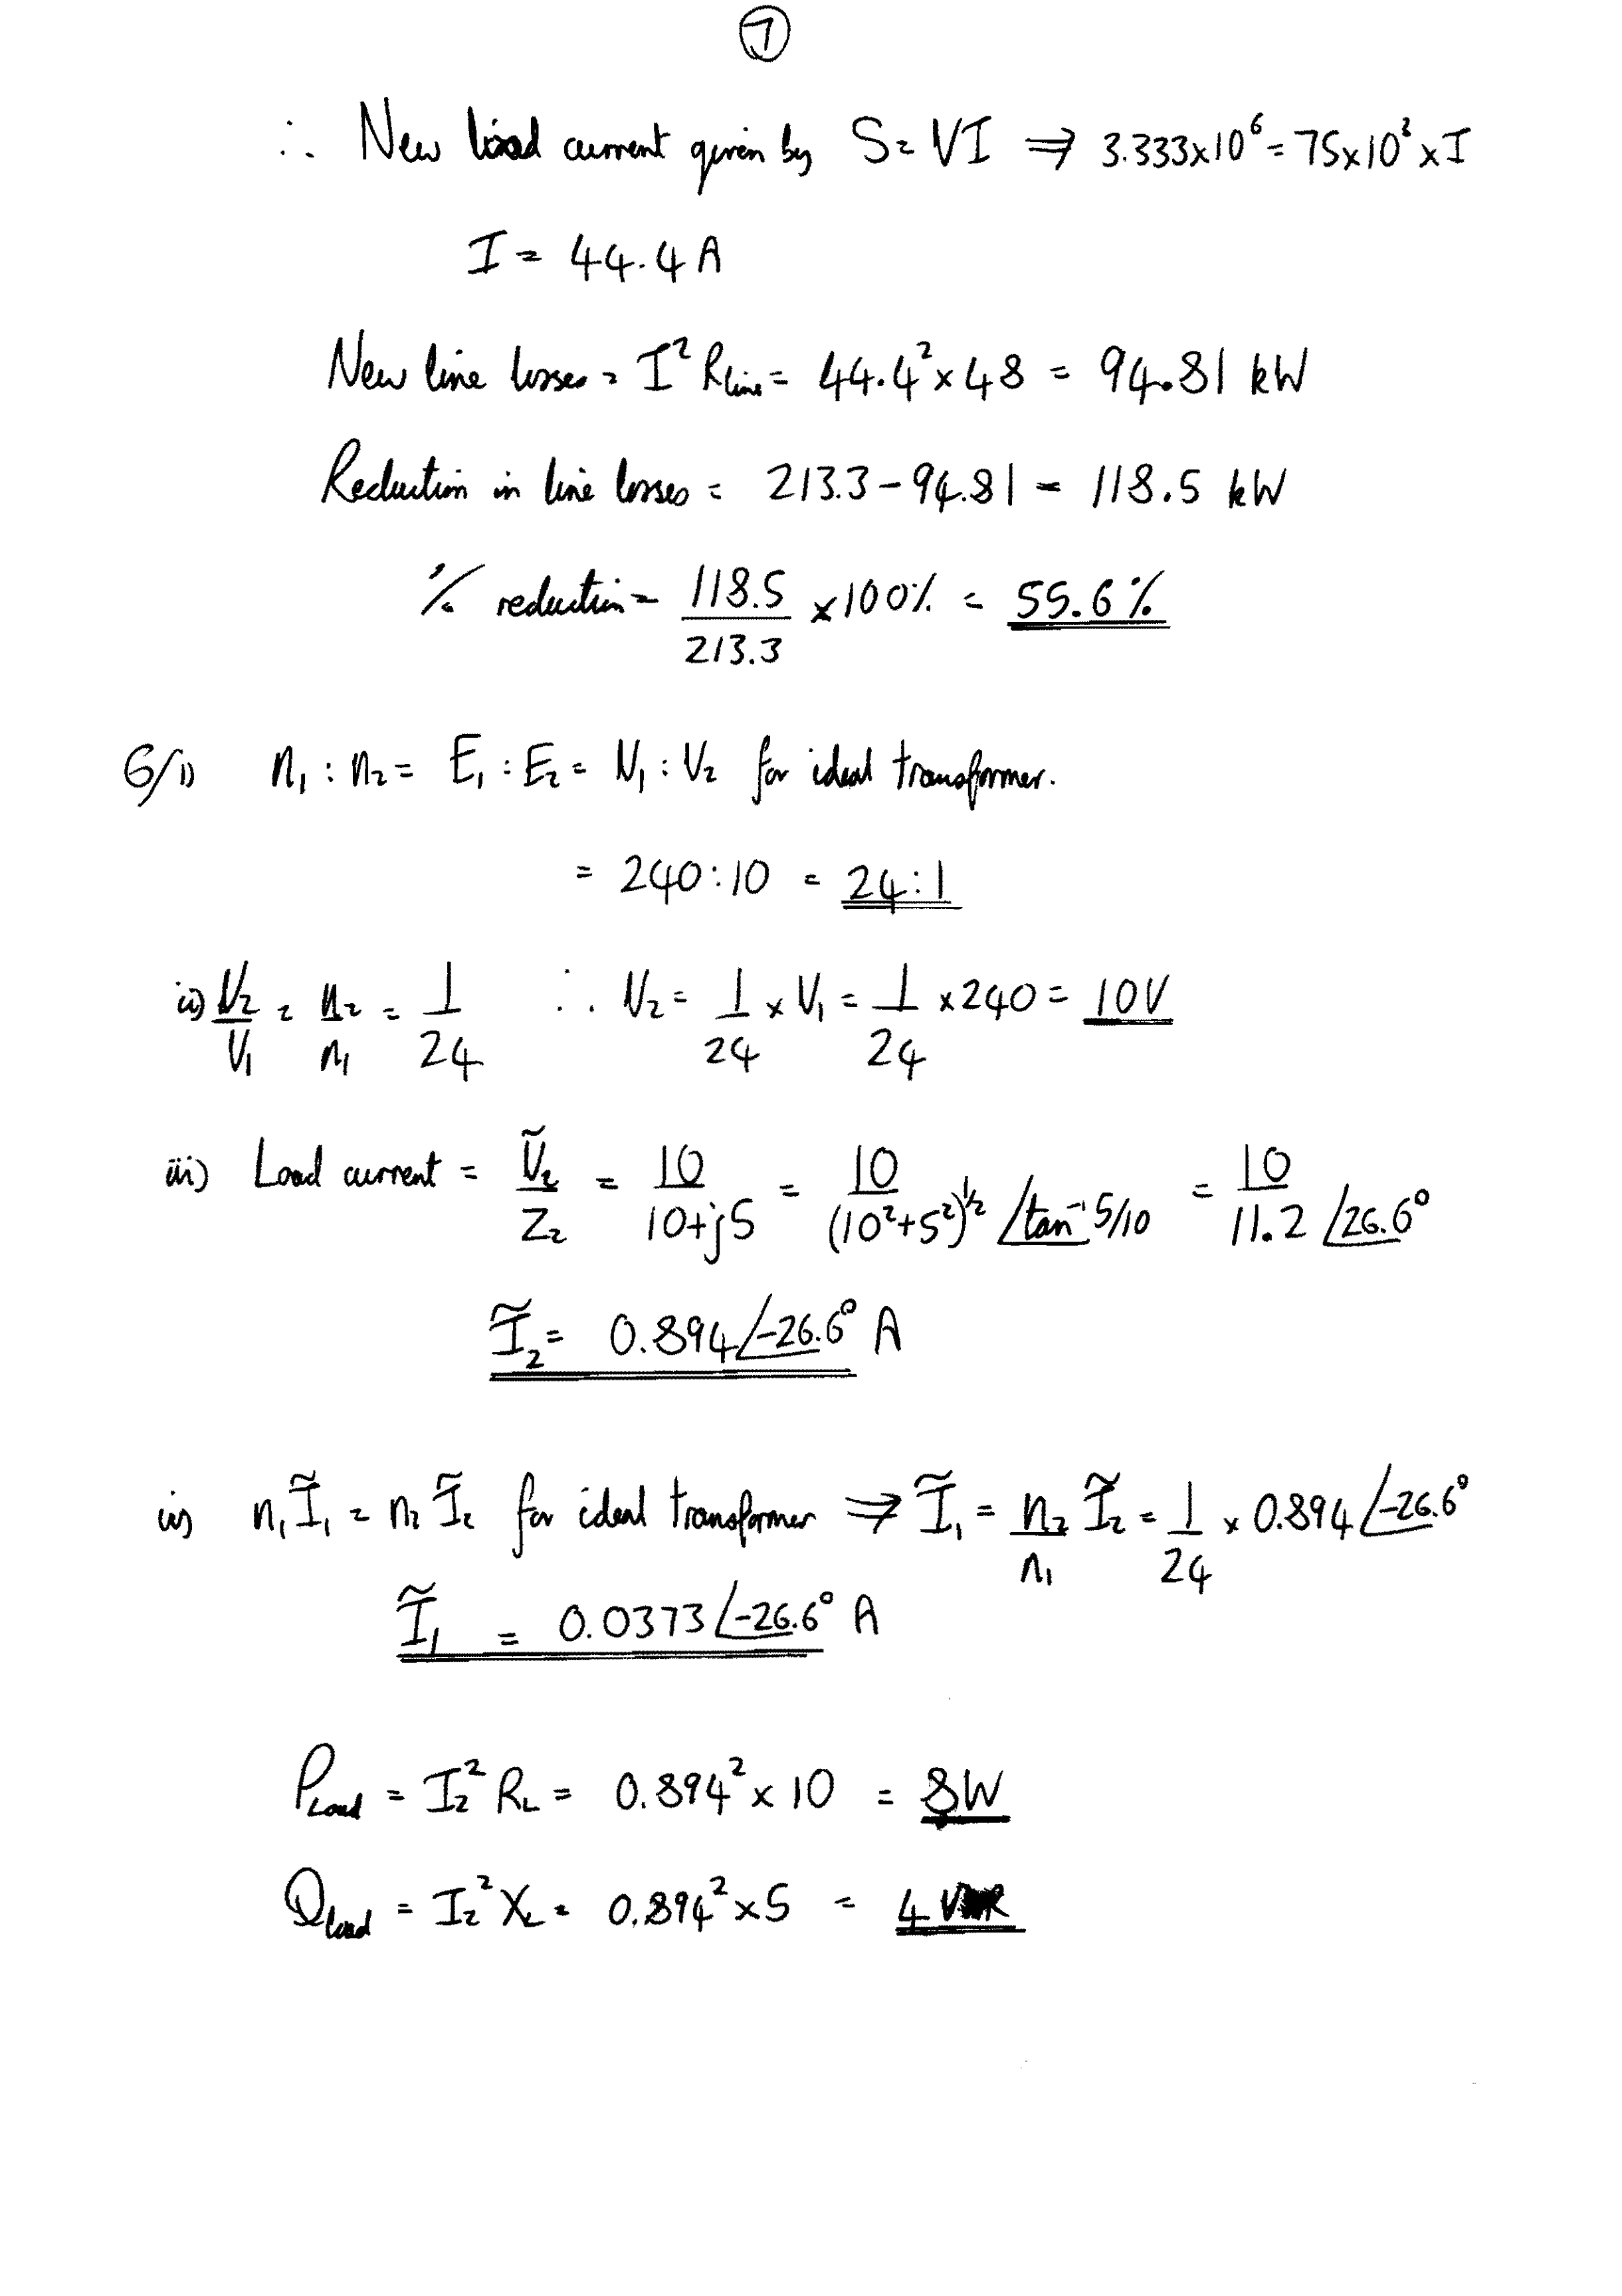 7
∴ New load current given by S = VI ⇒ 3.333x10⁶ = 75x10³ x I
I = 44.4 A
New line losses = I² R_line = 44.4² x 48 = 94.81 kW
Reduction in line losses = 213.3 - 94.81 = 118.5 kW
% reduction = 118.5/213.3 x 100% = 55.6%
6/i) n₁ : n₂ = E₁ : E₂ = V₁ : V₂ for ideal transformer.
= 240 : 10 = 24 : 1
ii) V₂/V₁ = n₂/n₁ = 1/24 ∴ V₂ = 1/24 x V₁ = 1/24 x 240 = 10V
iii) Load current = Ṽ₂/Z₂ = 10/(10+j5) = 10/((10²+5²)^½ ∠tan⁻¹ 5/10) = 10/(11.2 ∠26.6°)
Ĩ₂ = 0.894 ∠-26.6° A
iv) n₁Ĩ₁ = n₂Ĩ₂ for ideal transformer ⇒ Ĩ₁ = n₂/n₁ Ĩ₂ = 1/24 x 0.894 ∠-26.6°
Ĩ₁ = 0.0373 ∠-26.6° A
P_Load = I₂² R_L = 0.894² x 10 = 8W
Q_load = I₂² X_L = 0.894² x 5 = 4